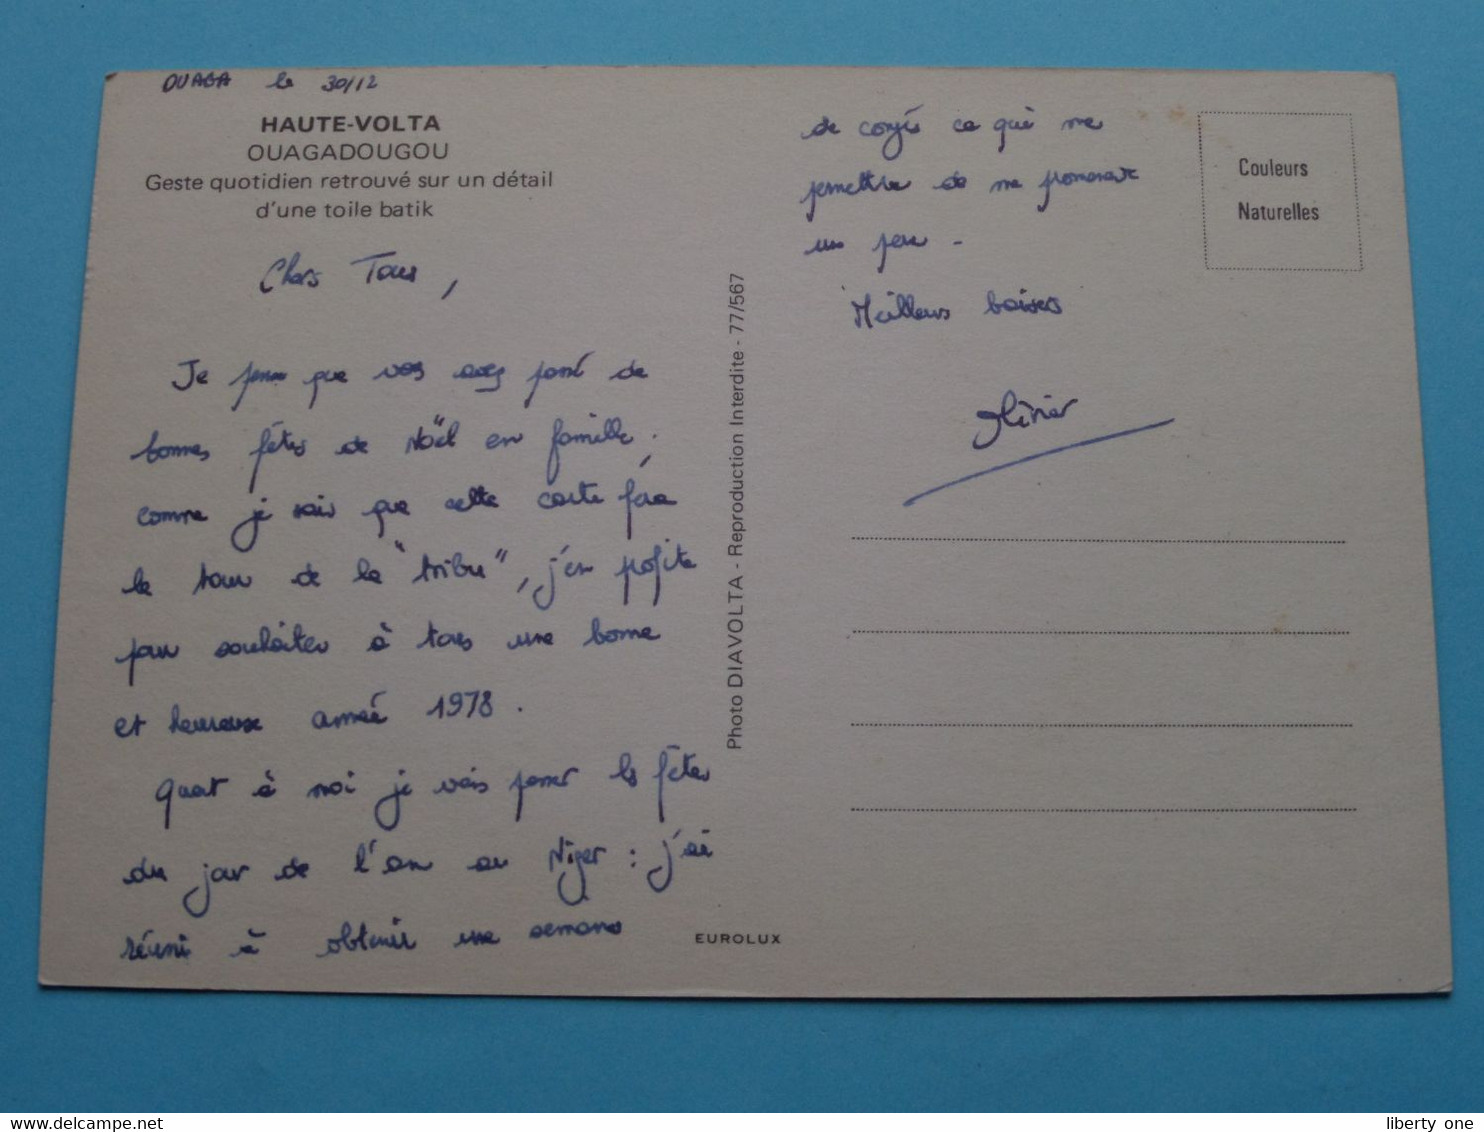 OUAGA le 30/12
HAUTE-VOLTA
OUAGADOUGOU
Geste quotidien retrouvé sur un détail
d'une toile batik
Chers Tous,
Je pense que vous avez passé de
bonnes fêtes de Noël en famille.
comme je sais que cette carte fera
le tour de la "tribu", j'en profite
pour souhaiter à tous une bonne
et heureuse année 1978.
Quant à moi je vais passer les fêtes
du jour de l'an au Niger : j'ai
réussi à obtenir une semaine
de congés ce qui me
permettra de me promener
un peu -
Meilleurs baisers
Olivier
Couleurs
Naturelles
Photo DIAVOLTA - Reproduction Interdite - 77/567
EUROLUX
www.delcampe.net
liberty one